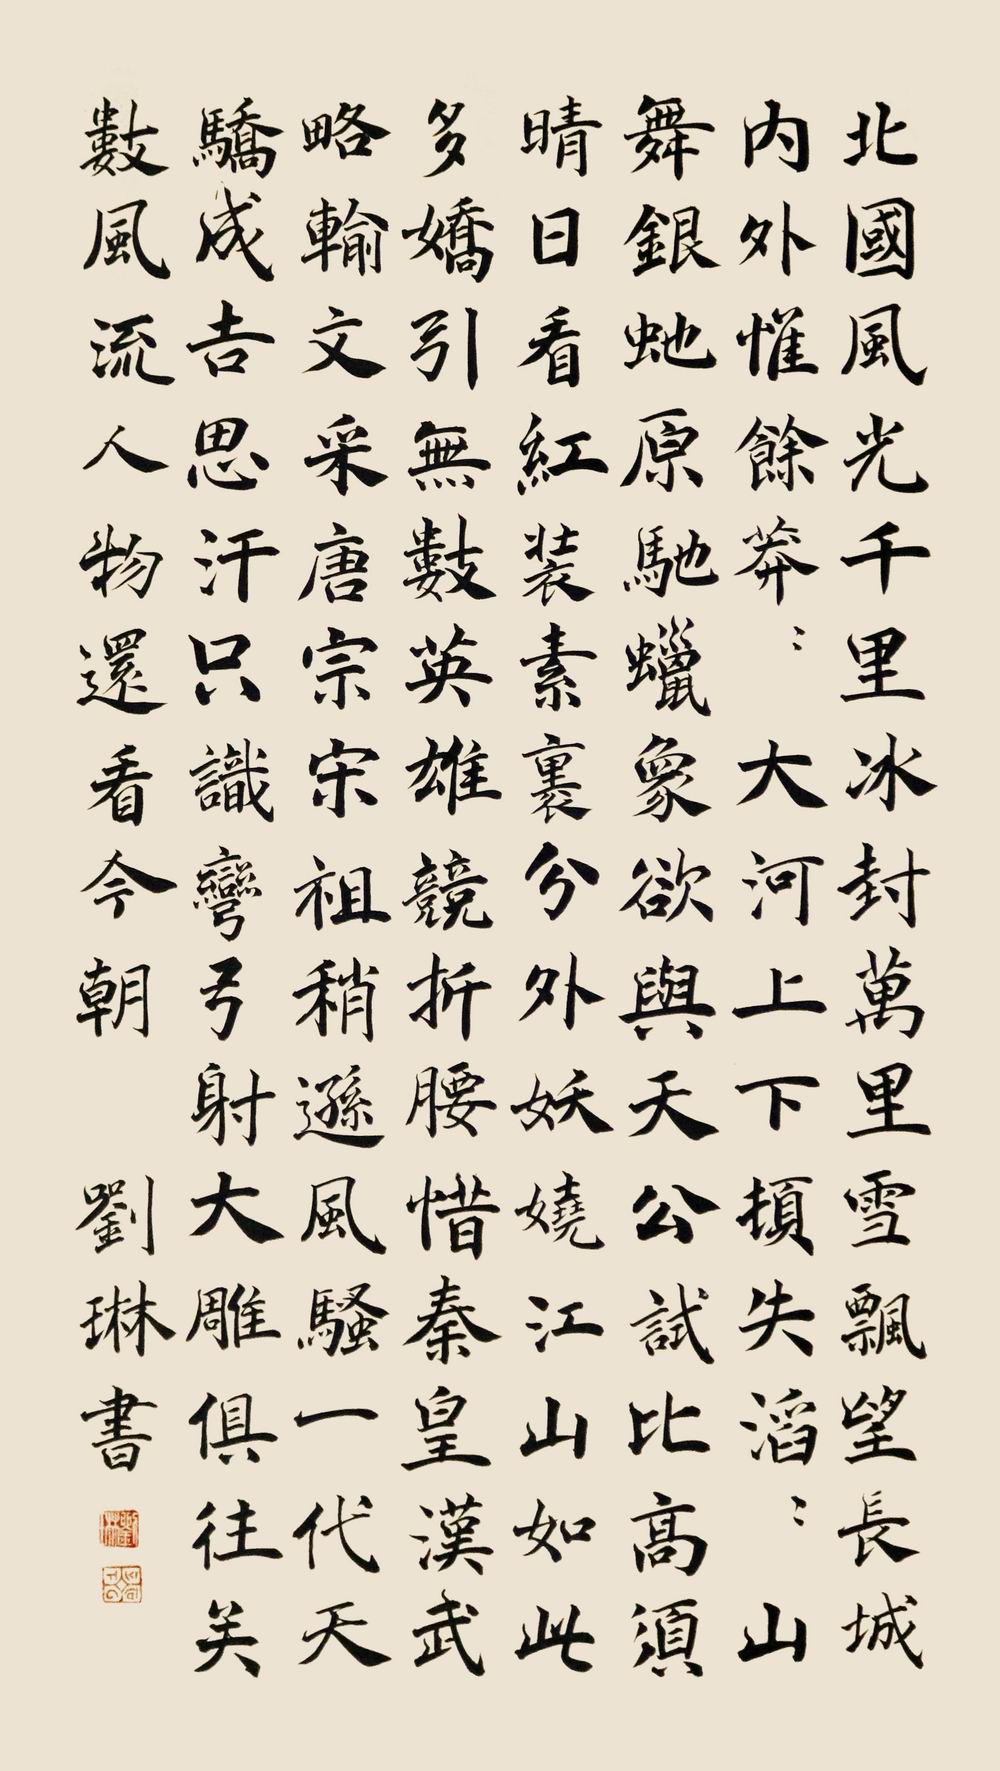 北國風光千里冰封萬里雪飄望長城
内外惟餘莽〻大河上下頓失滔〻山
舞銀虵原馳蠟象欲與天公試比高須
晴日看紅装素裹分外妖嬈江山如此
多嬌引無數英雄競折腰惜秦皇漢武
略輸文采唐宗宋祖稍遜風騷一代天
驕成吉思汗只識彎弓射大雕俱往矣
數風流人物還看今朝 劉琳書